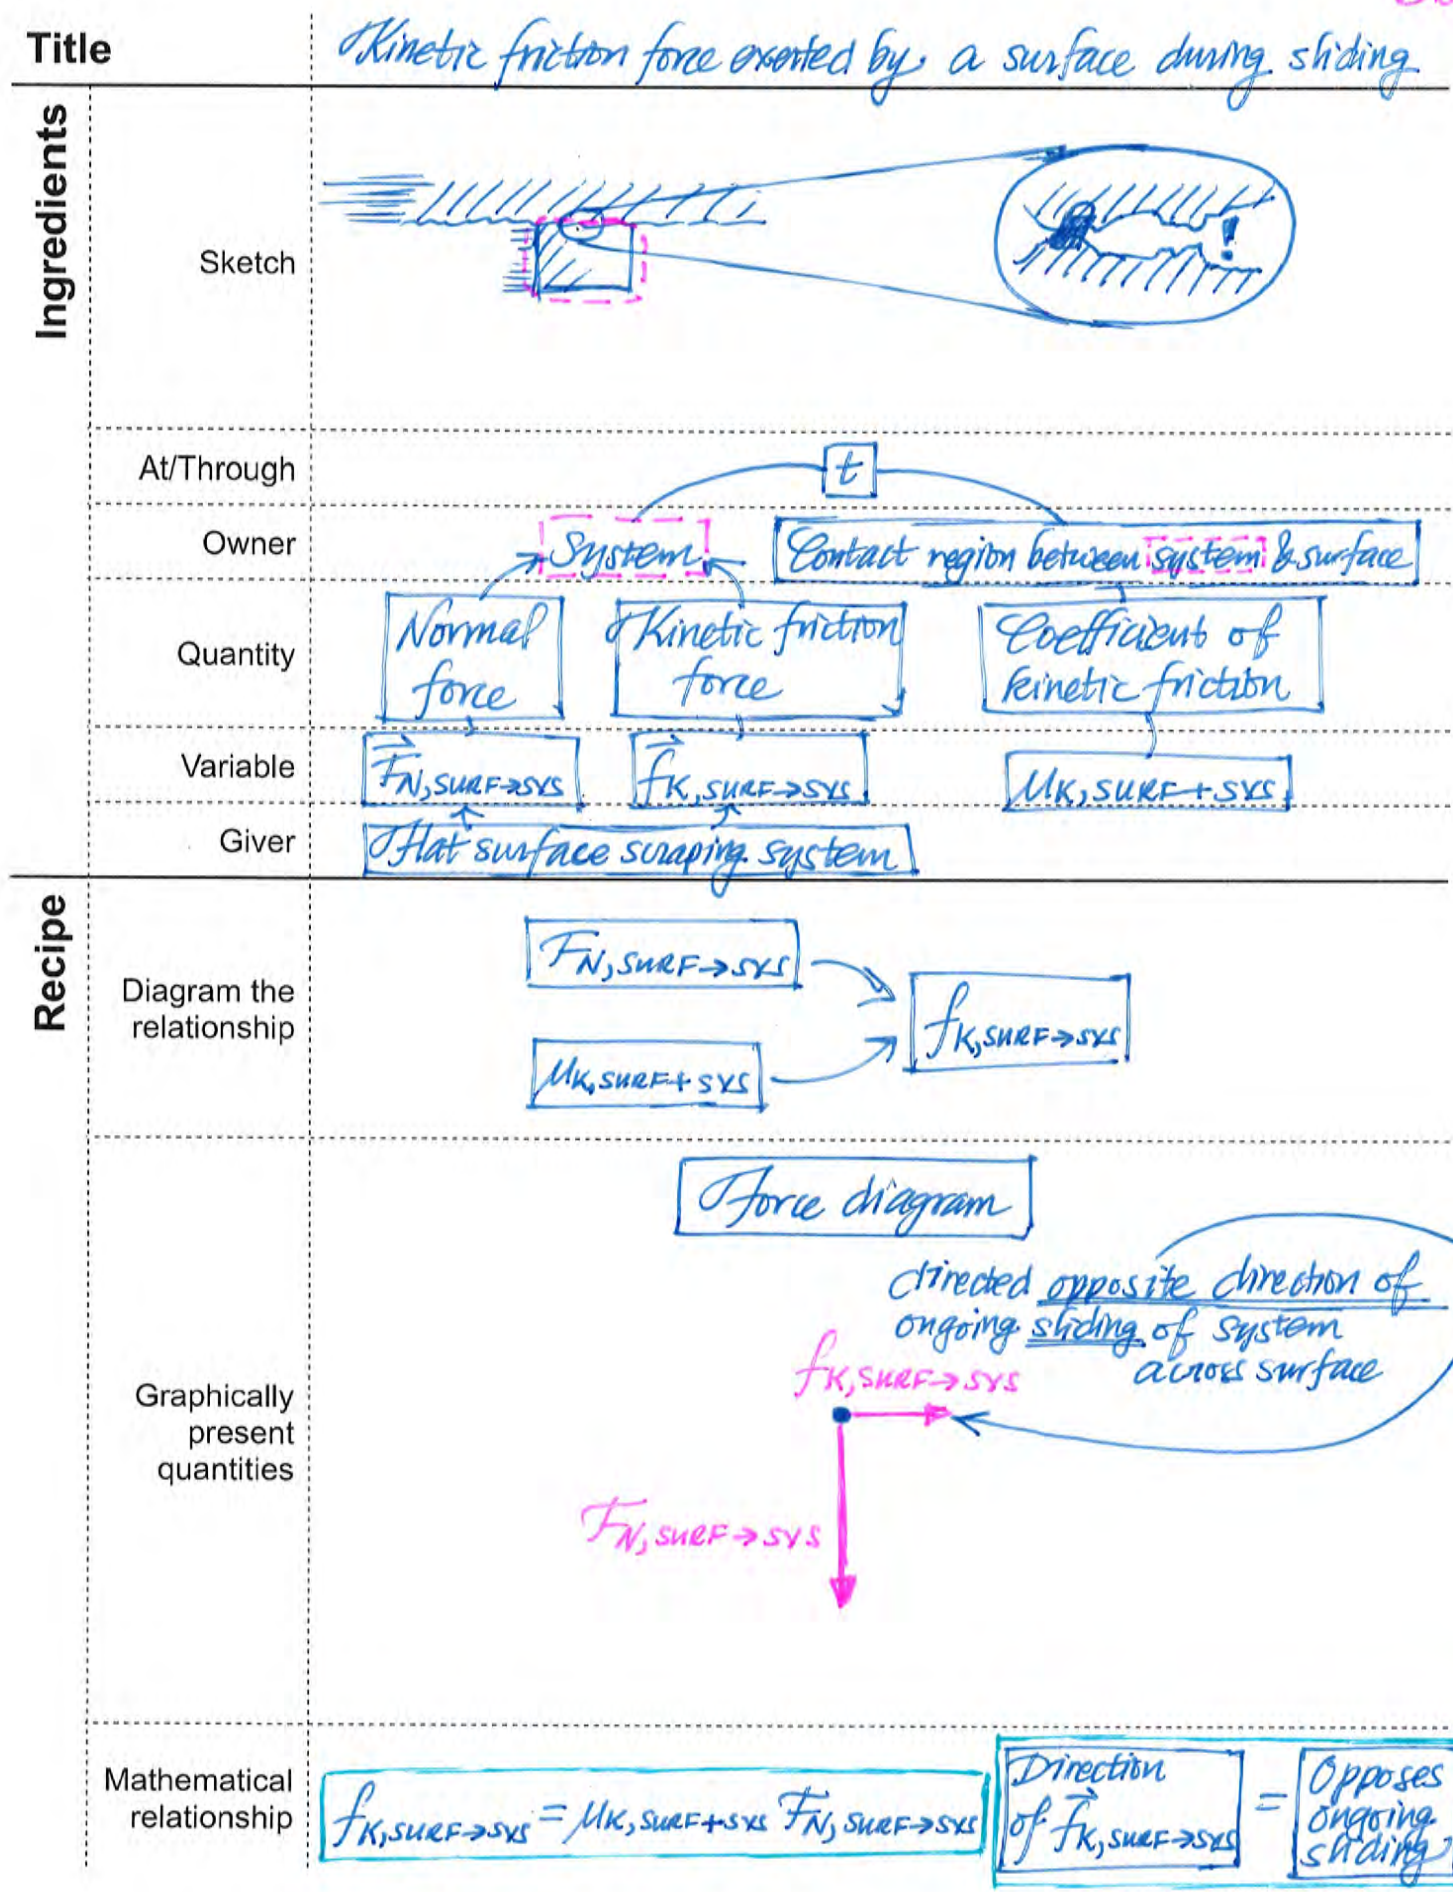 Title
Kinetic friction force exerted by a surface during sliding
Ingredients
Sketch
!
At/Through
t
Owner
System
Contact region between system & surface
Quantity
Normal force
Kinetic friction force
Coefficient of kinetic friction
Variable
F⃗N,SURF→SYS
f⃗K,SURF→SYS
μK,SURF+SYS
Giver
Flat surface scraping system
Recipe
Diagram the
relationship
FN,SURF→SYS
fK,SURF→SYS
μK,SURF+SYS
Graphically
present
quantities
Force diagram
directed opposite direction of
ongoing sliding of system
across surface
fK,SURF→SYS
FN,SURF→SYS
Mathematical
relationship
fK,SURF→SYS = μK,SURF+SYS FN,SURF→SYS
Direction
of f⃗K,SURF→SYS
=
Opposes
ongoing
sliding